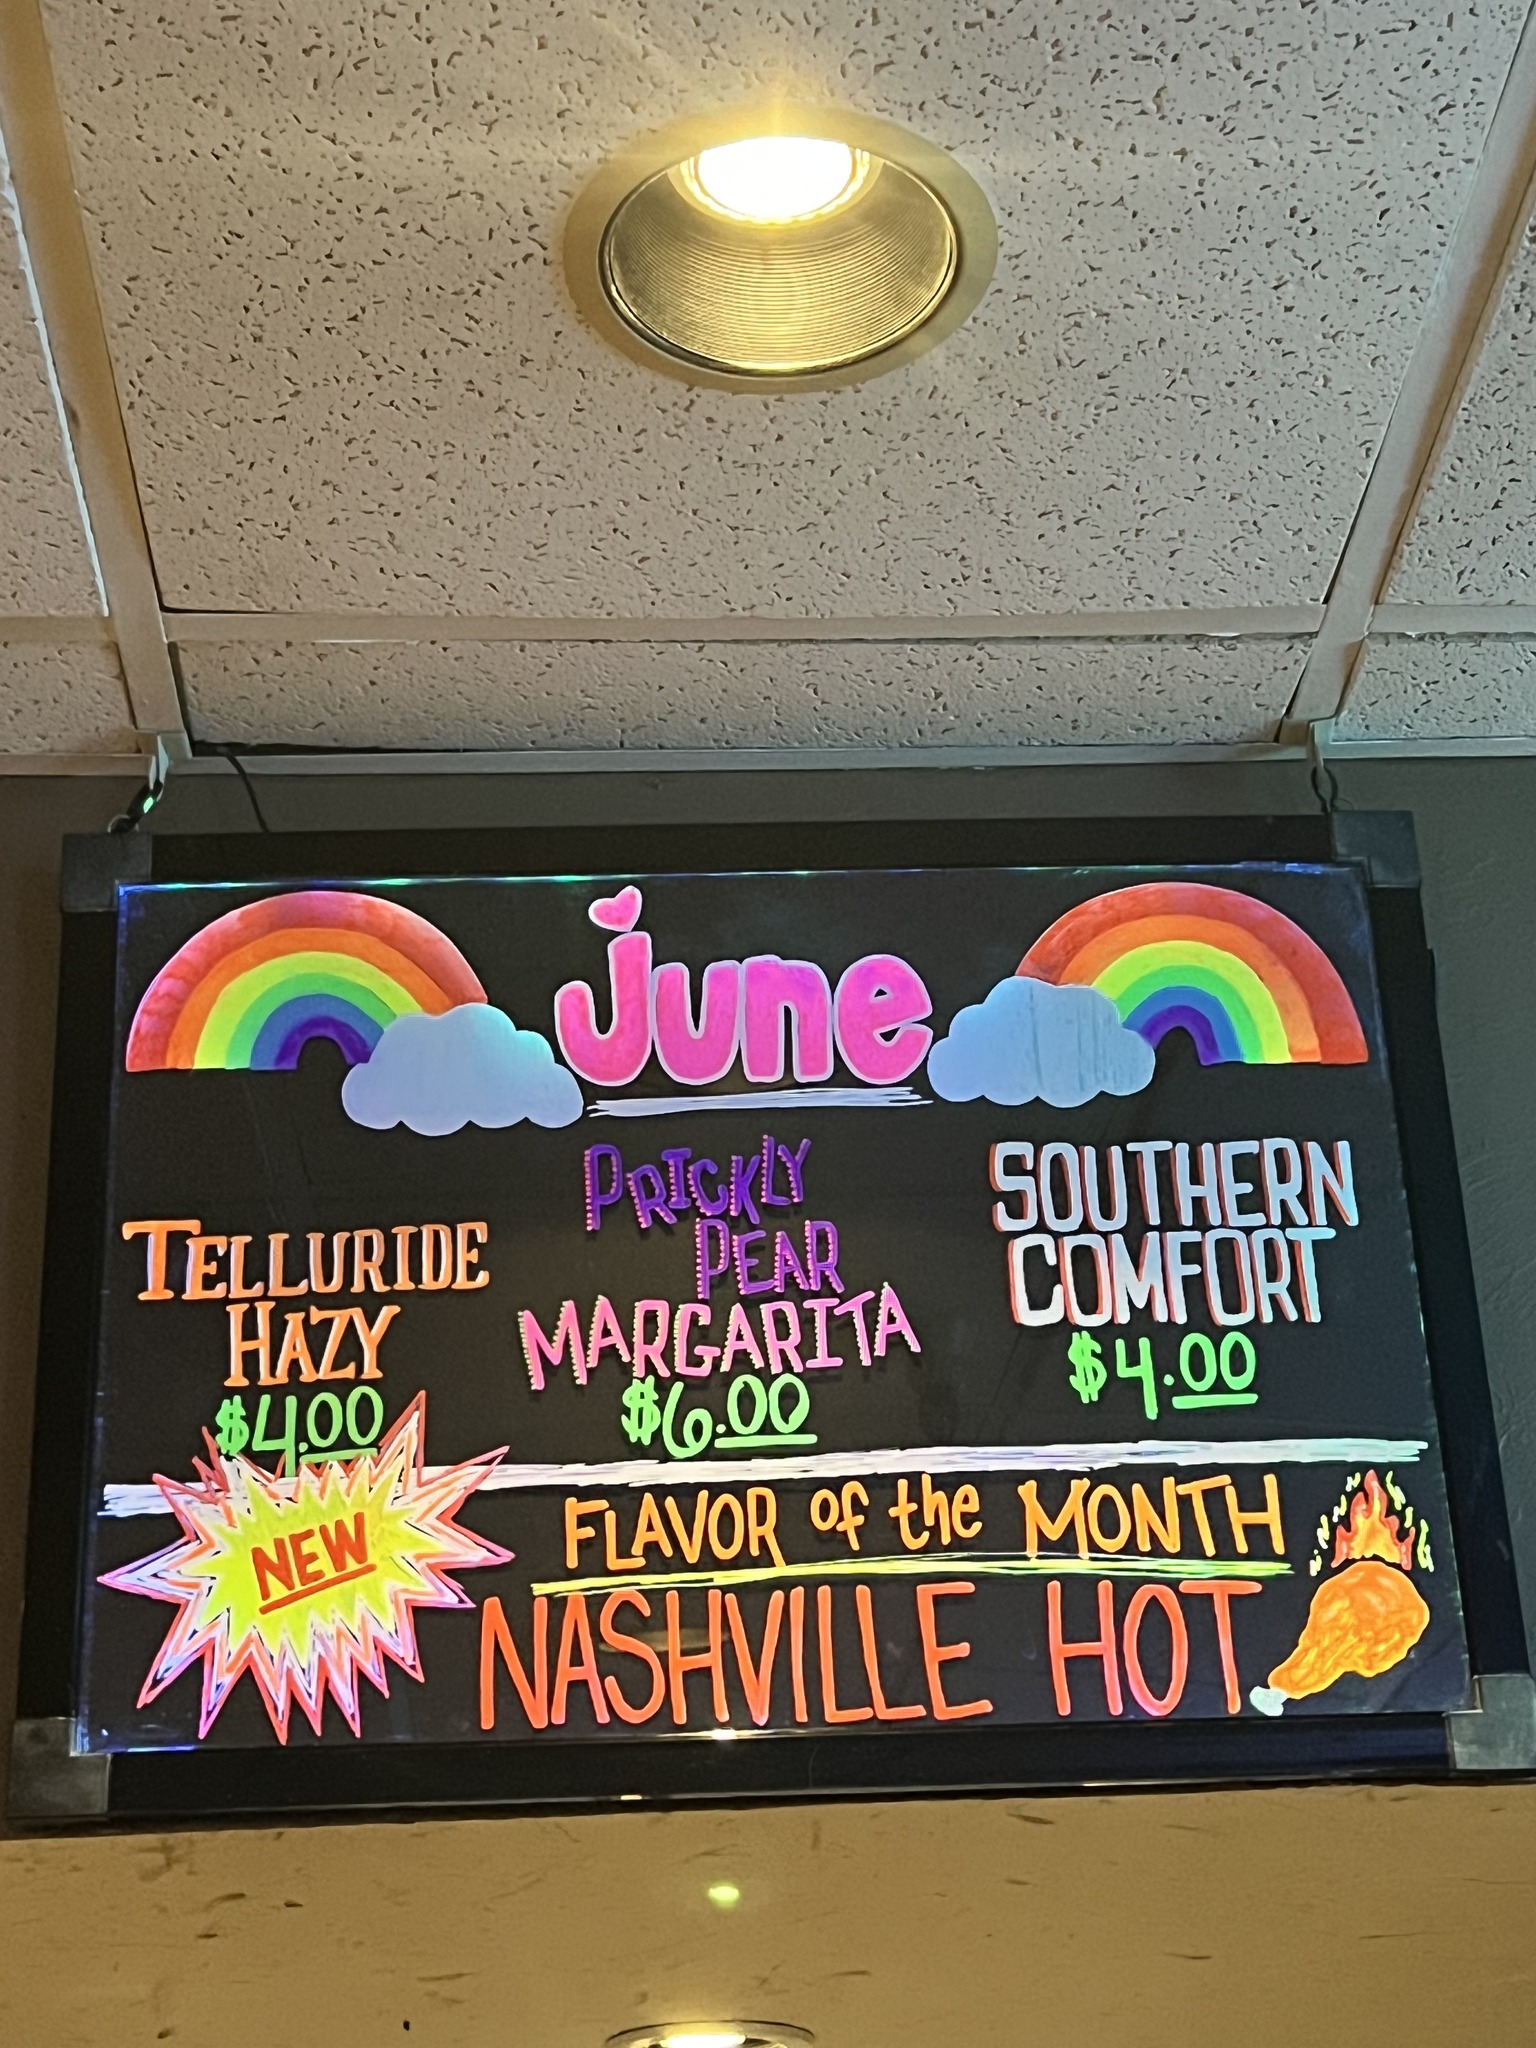 June
TELLURIDE
HAZY
$4.00
PRICKLY
PEAR
MARGARITA
$6.00
SOUTHERN
COMFORT
$4.00
NEW
FLAVOR of the MONTH
NASHVILLE HOT